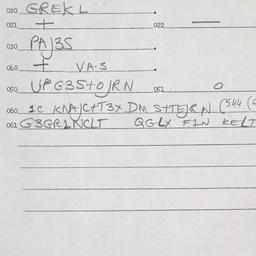 020 GREKL
021 + 022 —
030 PAJ3S
040 + VA.S
050 UPG3S+OJRN 051 O
060 1C KNAJC+T3X DM S+TEJRN (544
061 G3GR1NCLT QGLY F1N KELT